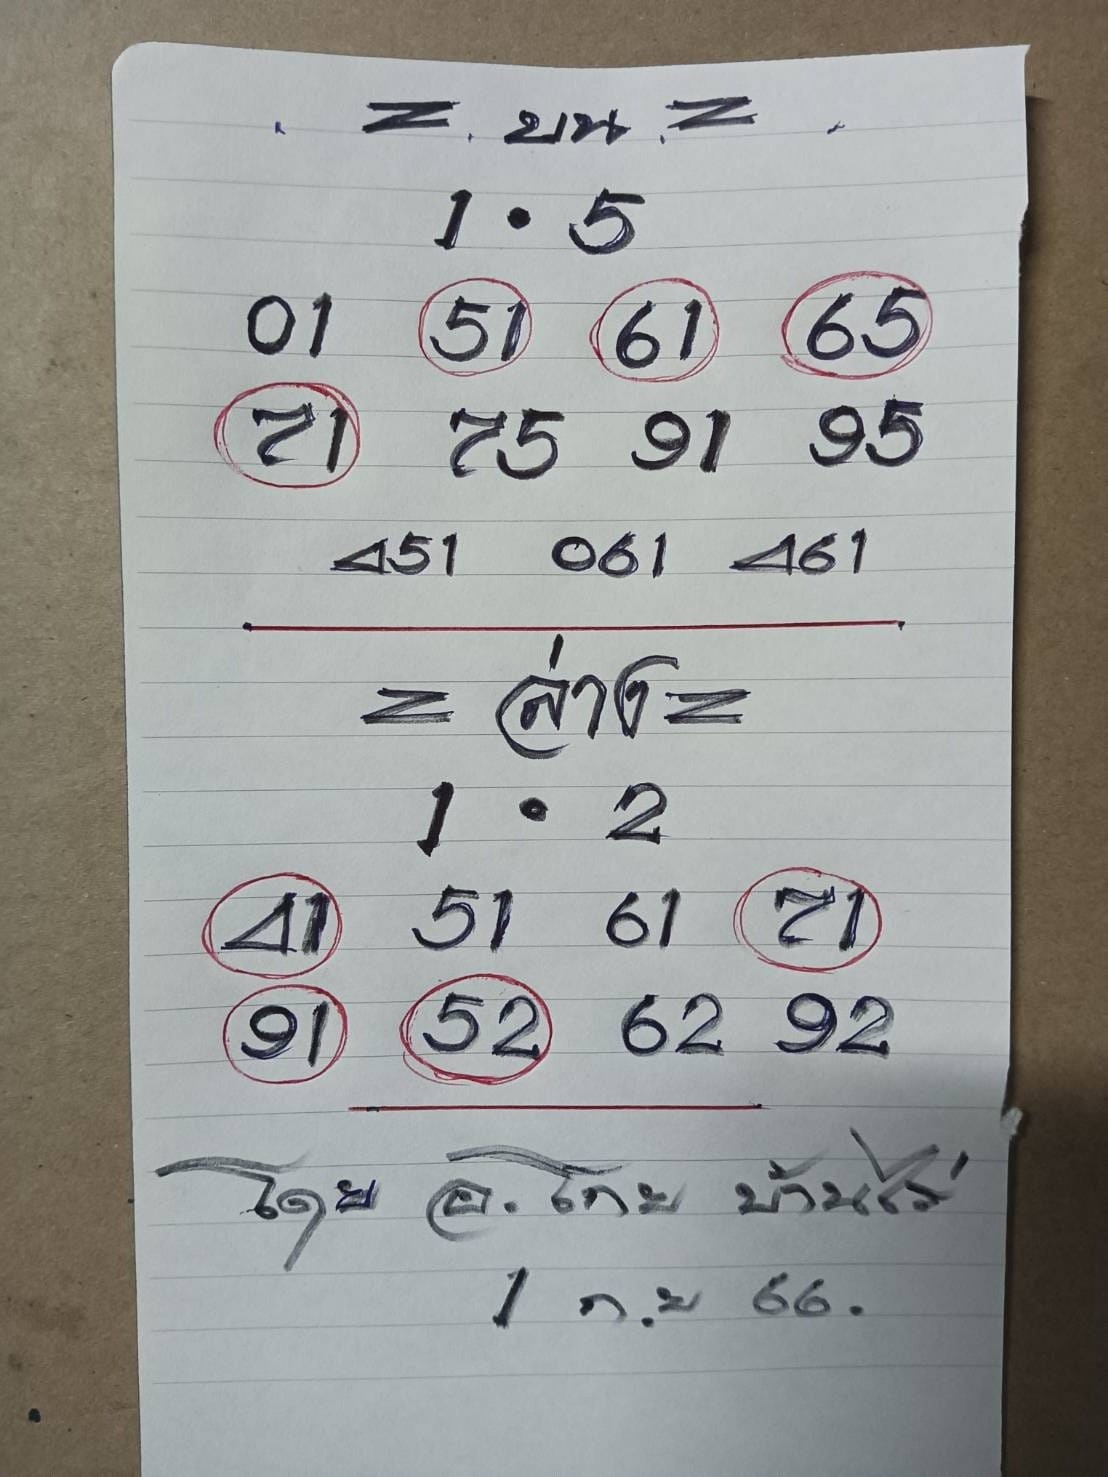 = บน =
1 • 5
01 51 61 65
71 75 91 95
451 061 461
= ล่าง =
1 • 2
41 51 61 71
91 52 62 92
โดย อ. โทย บ้านไร่
1 ก.ย 66.